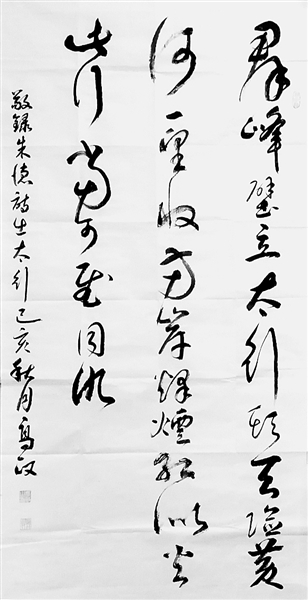 群峰壁立太行头天险黄
河一望收两岸烽煙红似火
此行当可慰同仇
敬録朱德诗出太行己亥秋月